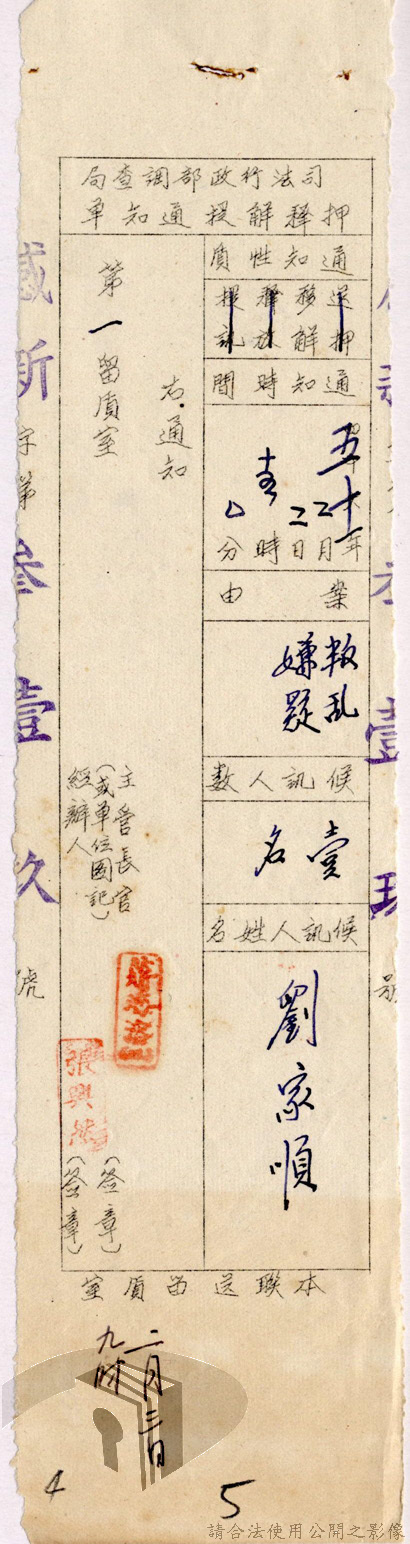 司法行政部調查局
押釋解提通知單
通知性質
送押
移解
釋放
提訊
通知時間
五十年
二月
二日
時
分
案由
叛乱
嫌疑
候訊人數
壹名
候訊人姓名
劉家順
右通知
第一留質室
主管長官
(或單位圖記)
經辦人
(簽章)
(簽章)
張興
本聯送留質室
字第叁壹玖號
二月三日
九時
4
5
請合法使用公開之影像